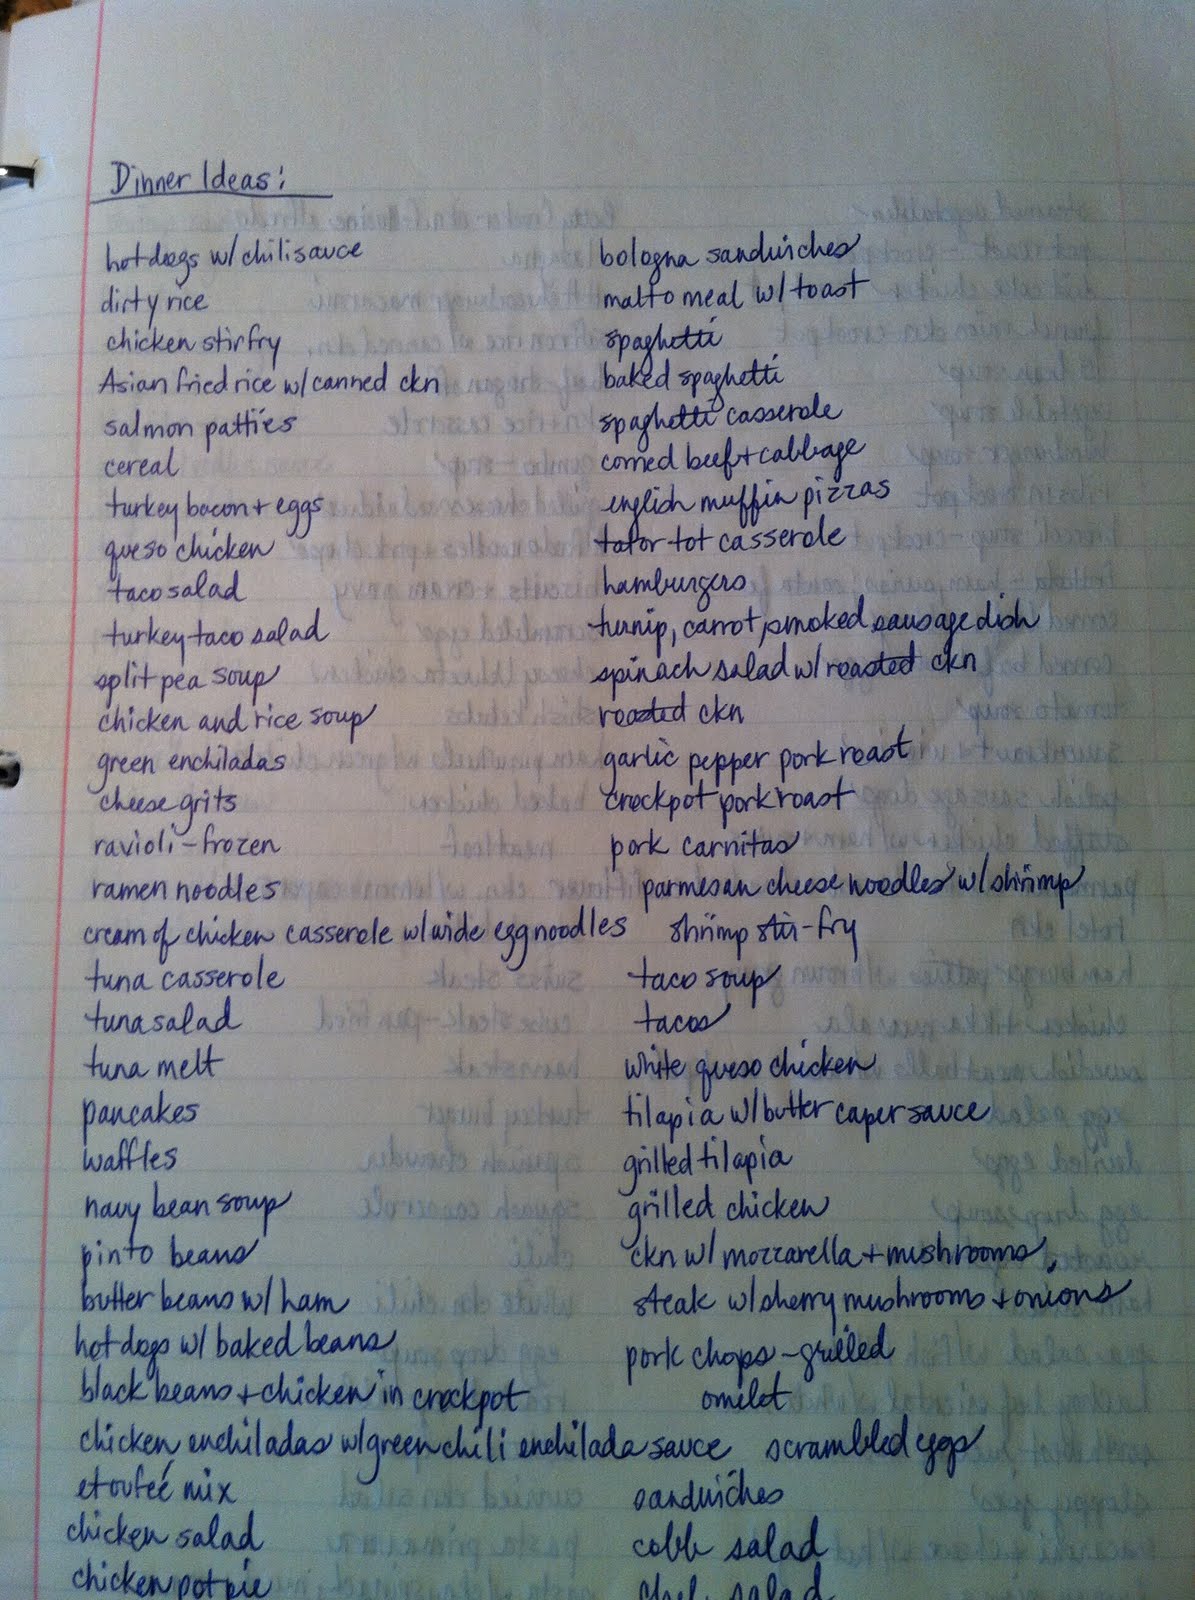 Dinner Ideas:
hotdogs w/ chili sauce
dirty rice
chicken stirfry
Asian fried rice w/ canned ckn
salmon patties
cereal
turkey bacon + eggs
queso chicken
taco salad
turkey taco salad
split pea soup
chicken and rice soup
green enchiladas
cheese grits
ravioli - frozen
ramen noodles
cream of chicken casserole w/ wide egg noodles
tuna casserole
tuna salad
tuna melt
pancakes
waffles
navy bean soup
pinto beans
butter beans w/ ham
hotdogs w/ baked beans
black beans + chicken in crockpot
chicken enchiladas w/ green chili enchilada sauce
etoufeé mix
chicken salad
chicken pot pie
bologna sandwiches
malto meal w/ toast
spaghetti
baked spaghetti
spaghetti casserole
corned beef + cabbage
english muffin pizzas
tator tot casserole
hamburgers
turnip, carrot, smoked sausage dish
spinach salad w/ roasted ckn
roasted ckn
garlic pepper pork roast
crockpot pork roast
pork carnitas
parmesan cheese noodles w/ shrimp
shrimp stir-fry
taco soup
tacos
white queso chicken
tilapia w/ butter caper sauce
grilled tilapia
grilled chicken
ckn w/ mozzarella + mushrooms
steak w/ sherry mushrooms + onions
pork chops - grilled
omelet
scrambled eggs
sandwiches
cobb salad
chef salad